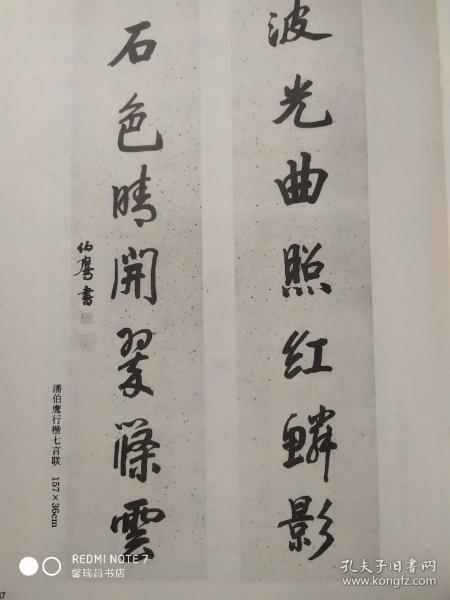 波光曲照紅鱗影
石色晴開翠篠雲
伯鷹書
潘伯鹰行楷七言联 157×36cm
REDMI NOTE 7
馨瑞昌书店
孔夫子旧书网
www.kongfz.com